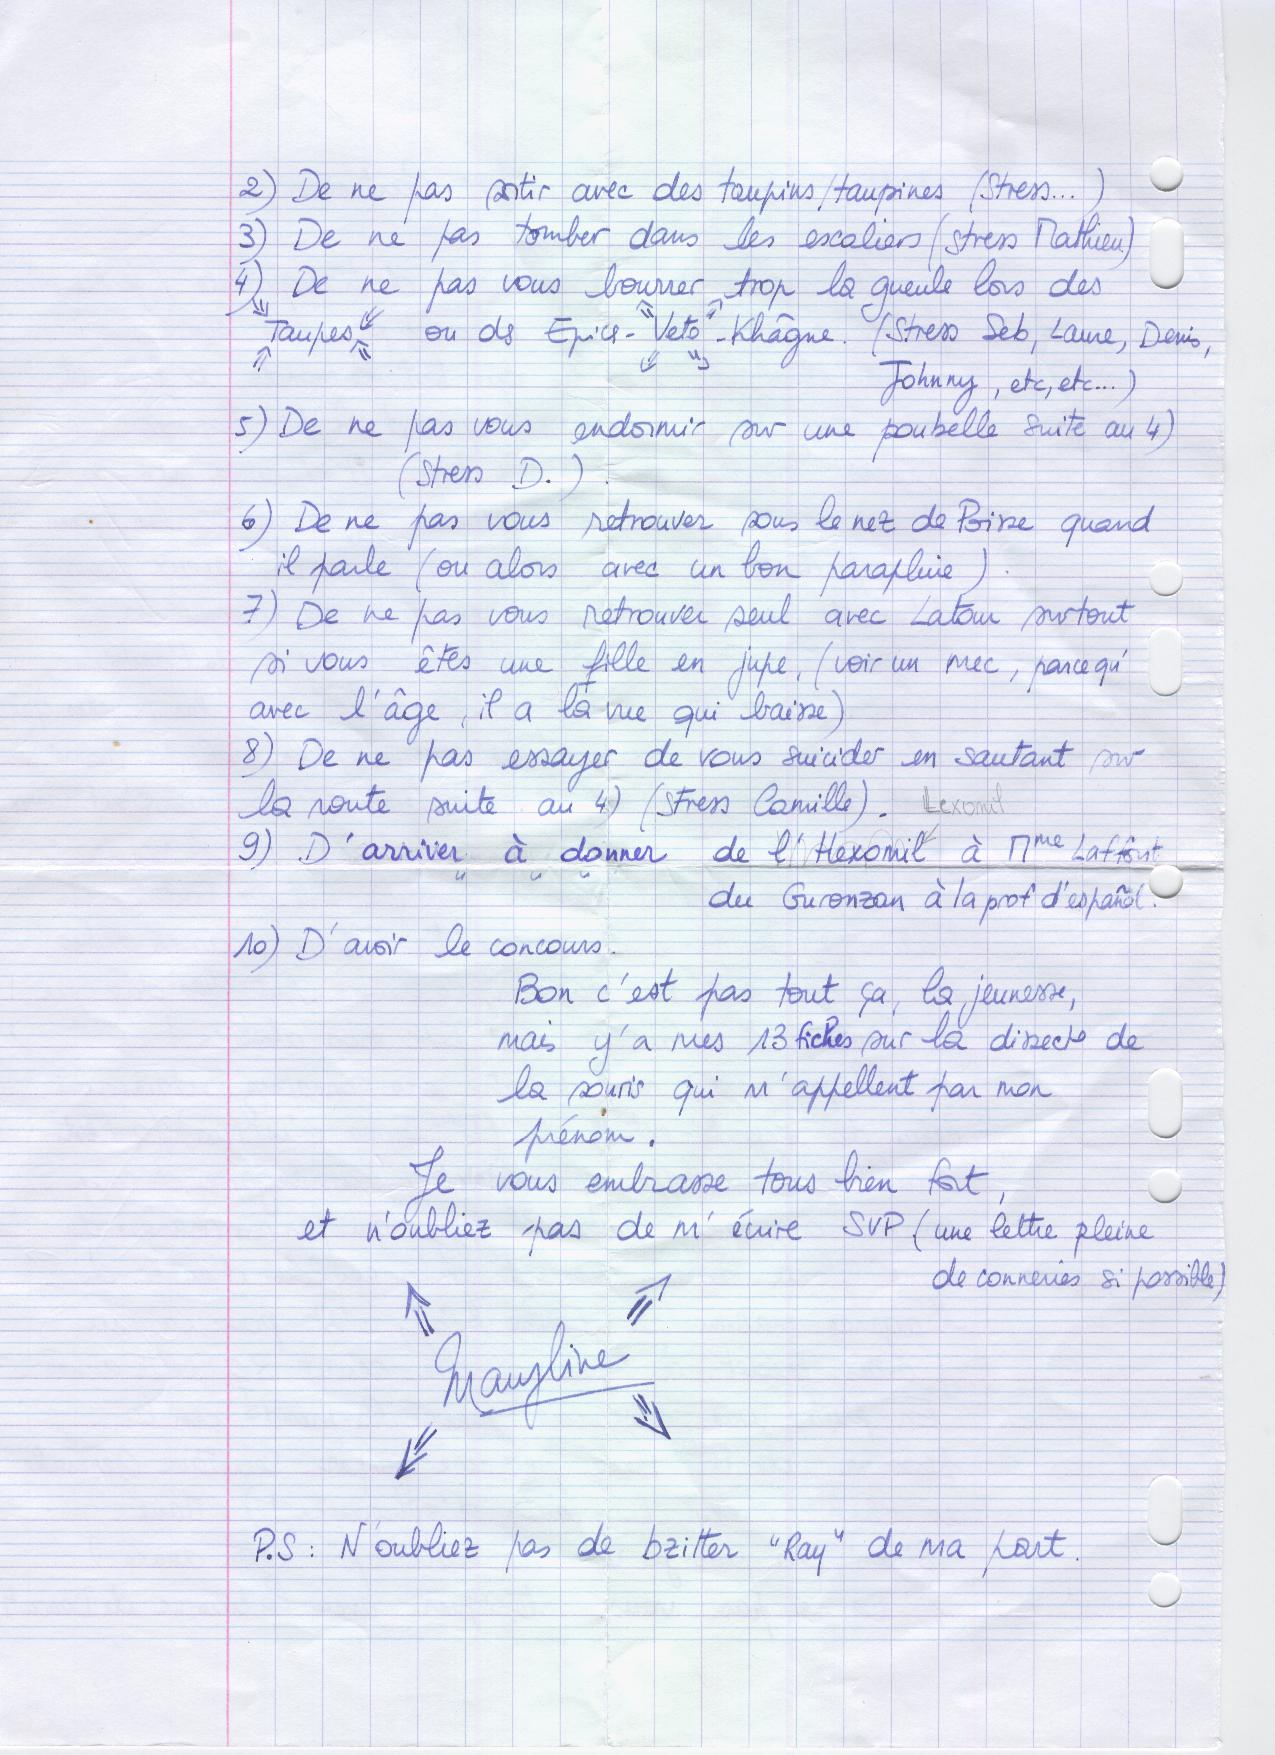 2) De ne pas sortir avec des taupins/taupines (Stress...)
3) De ne pas tomber dans les escaliers (stress Mathieu)
4) De ne pas vous bourrer trop la gueule lors des
Taupes ou ds Epice-"Veto"-Khâgne. (Stress Seb, Laure, Denis,
Johnny, etc, etc...)
5) De ne pas vous endormir sur une poubelle suite au 4)
(Stress D.).
6) De ne pas vous retrouver sous le nez de Poisse quand
il parle (ou alors avec un bon parapluie).
7) De ne pas vous retrouver seul avec Latour surtout
si vous êtes une fille en jupe, (voir un mec, parcequ'
avec l'âge, il a la vue qui baisse)
8) De ne pas essayer de vous suicider en sautant sur
la route suite au 4) (Stress Camille). Lexomil
9) D'arriver à donner de l'Hexomil à Mme Laffont
du Guronzan à la prof d'español.
10) D'avoir le concours.
Bon c'est pas tout ça, la jeunesse,
mais y'a mes 13 fiches sur la dissecto de
la souris qui m'appellent par mon
prénom.
Je vous embrasse tous bien fort,
et n'oubliez pas de m'écrire SVP (une lettre pleine
de conneries si possible)
P.S: N'oubliez pas de bzitter "Ray" de ma part.